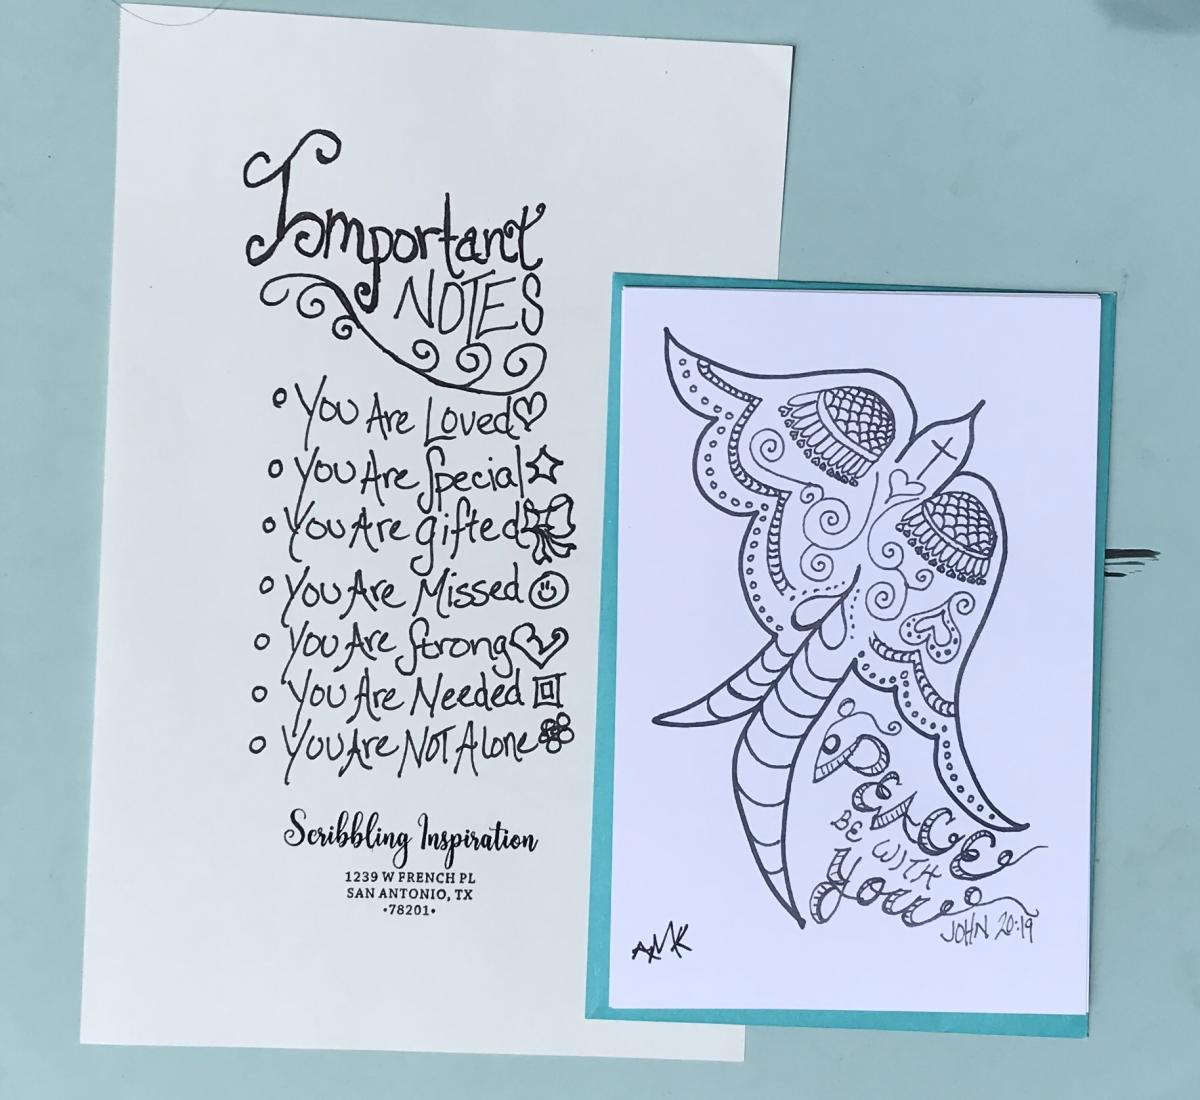 Important
NOTES
You Are Loved
You Are Special
You Are gifted
You Are Missed
You Are Strong
You Are Needed
You Are NOT Alone
Scribbling Inspiration
1239 W FRENCH PL
SAN ANTONIO, TX
•78201•
PEACE
BE WITH
You
JOHN 20:19
AMK